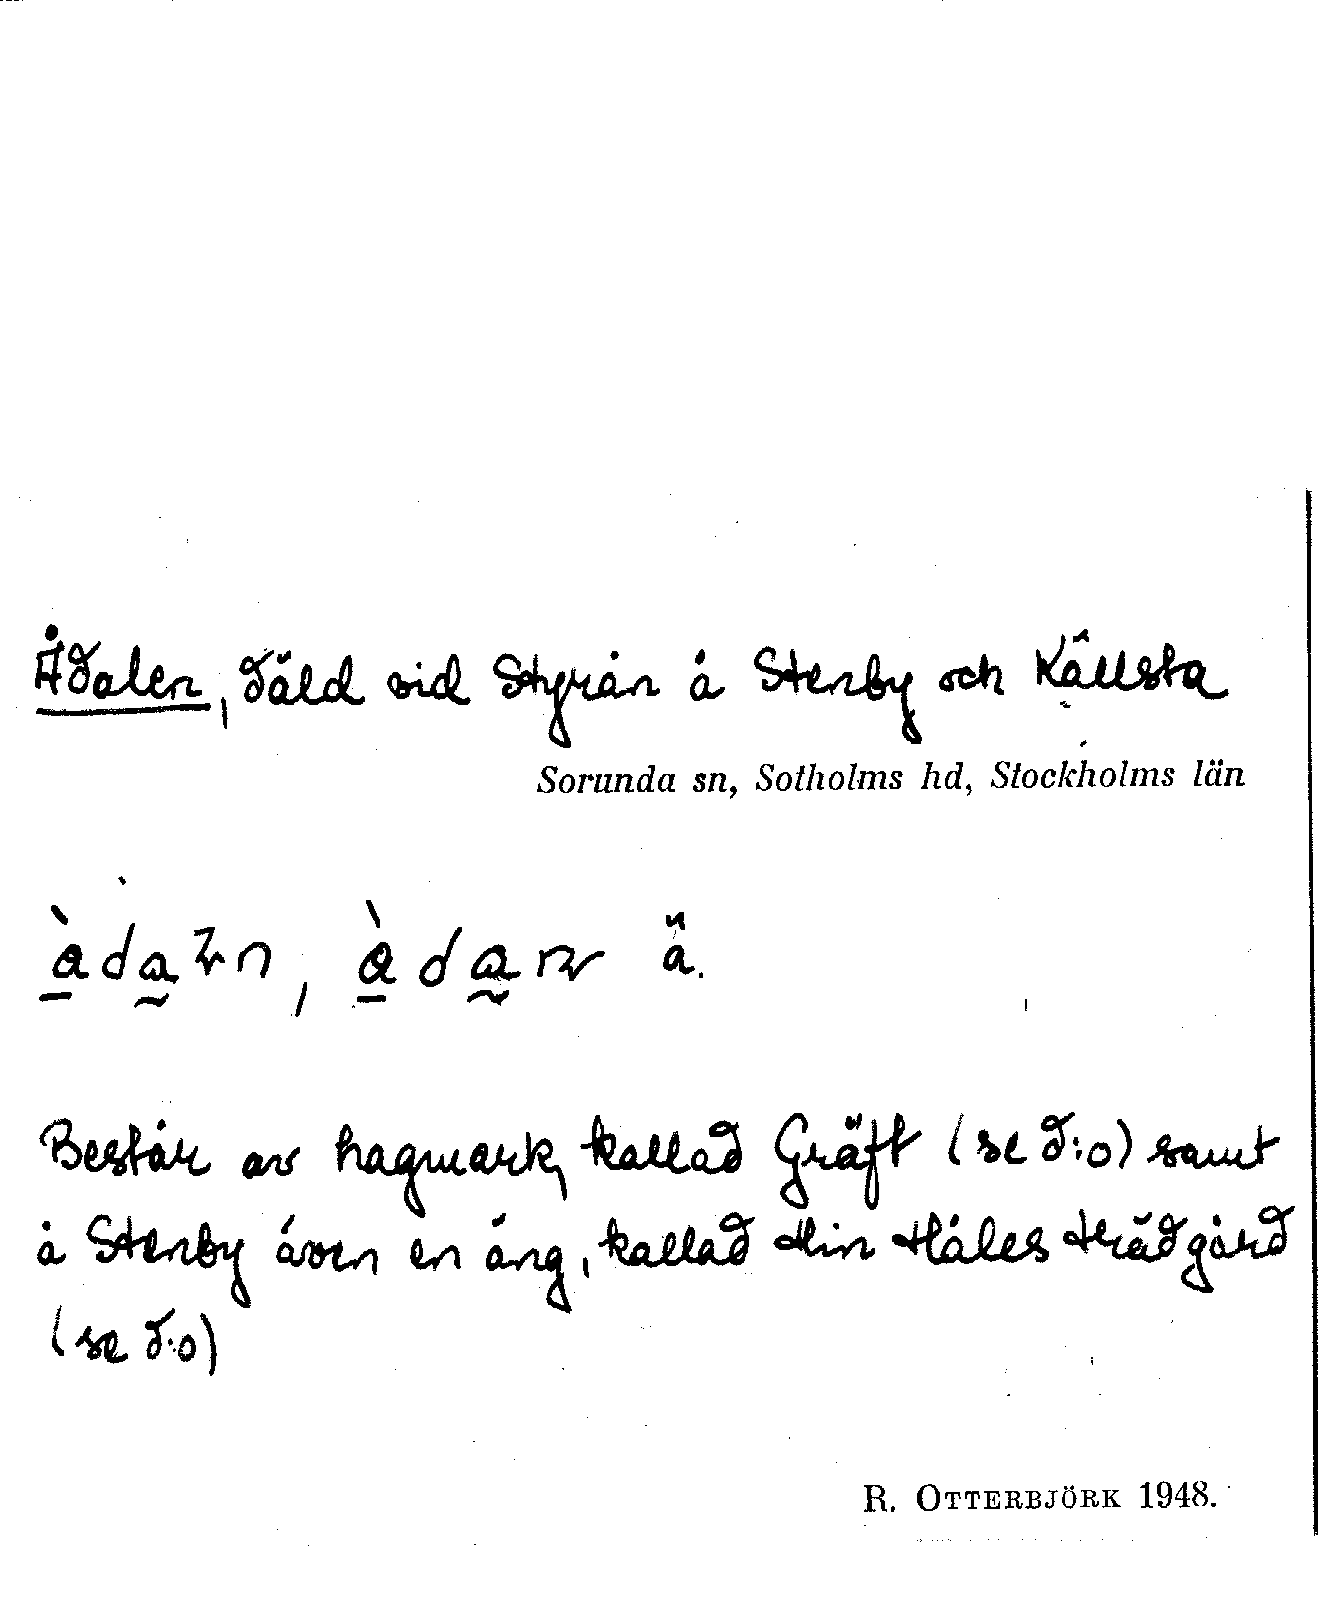 Ådalen, däld vid Styrån å Stenby och Källsta
Sorunda sn, Sotholms hd, Stockholms län
ä.
Består av hagmark, kallad Gräft (se d:o) samt
å Stenby även en äng, kallad Hin Håles trädgård
(se d:o)
R. OTTERBJÖRK 1948.